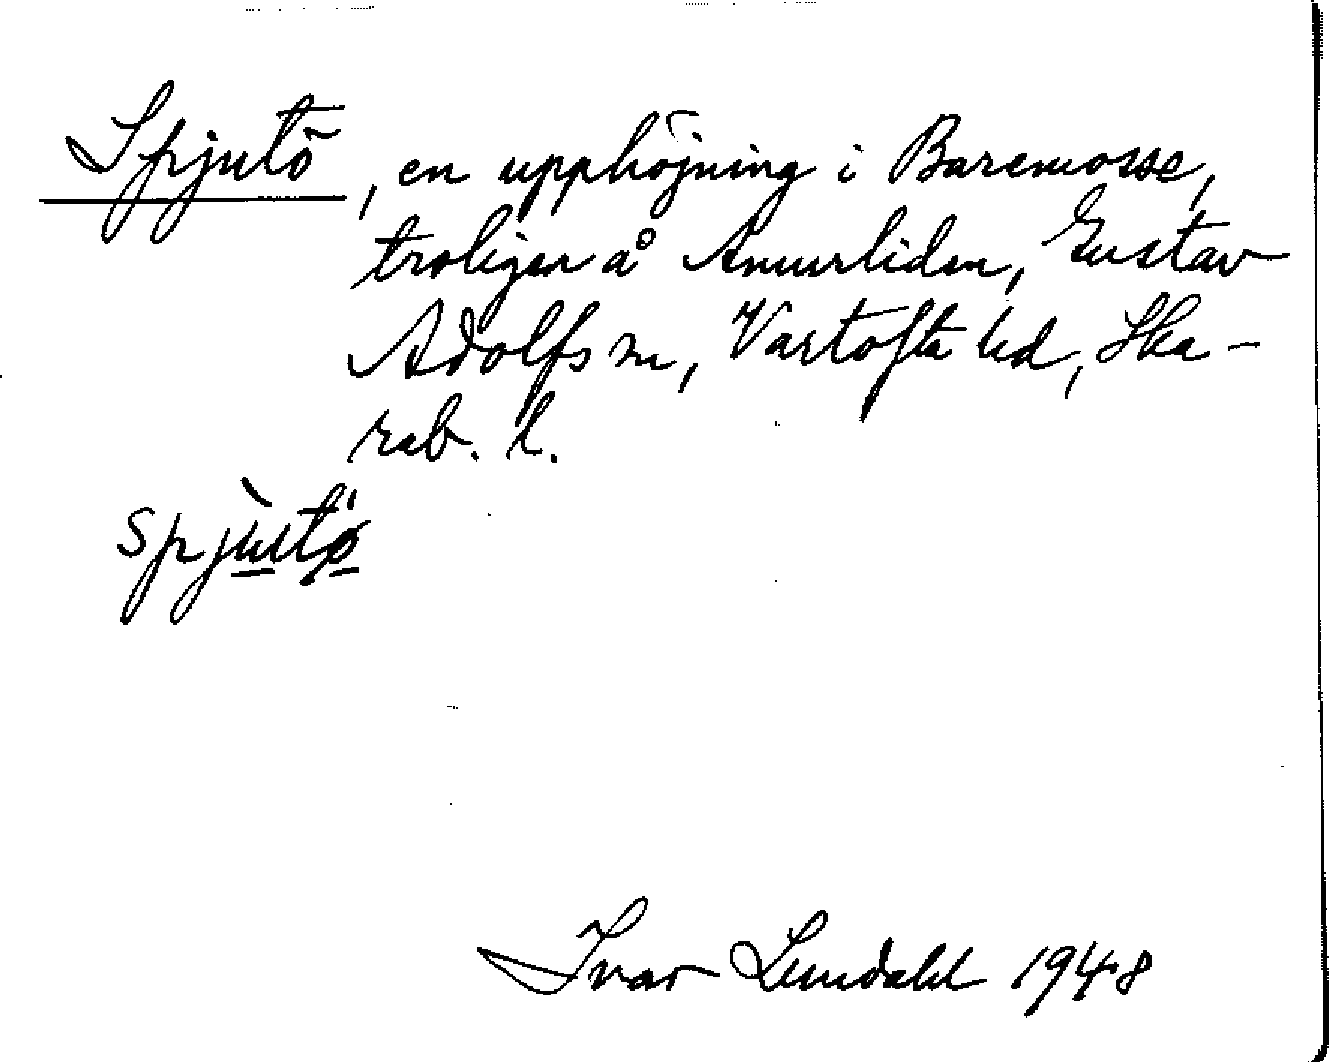 Spjutö, en upphöjning i Baremosse,
troligen å Ammerliden, Gustav
Adolfs sn, Vartofta hd, Ska-
rab. l.
spjùtø
Ivar Lundahl 1948